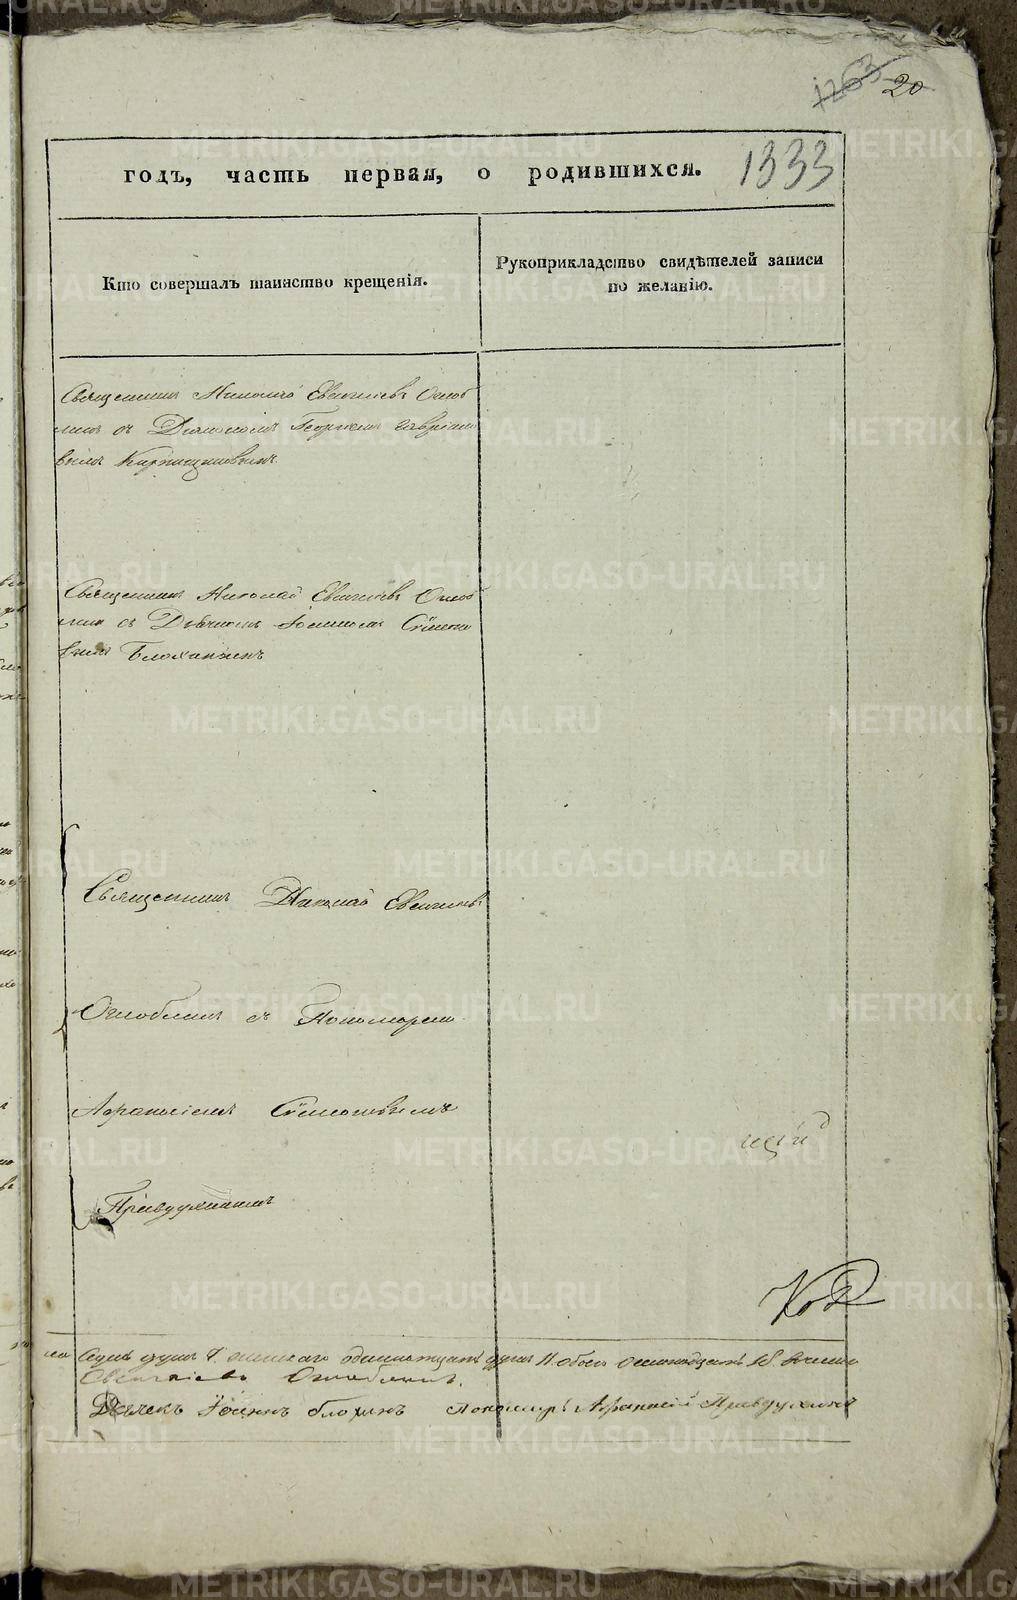 1263 20
годъ, часть первая, о родившихся. 1333
Кто совершалъ таинство крещенія.
Рукоприкладство свидѣтелей записи
по желанію.
Священникъ Николай Евгениевъ Оглоб
линъ съ Діакономъ Георгіемъ Гавріило
вымъ
Священникъ Николай Евгениевъ Оглоб
линъ съ Дьячкомъ Іоанномъ Сѵмео
вымъ Блохинымъ
Священникъ Николай Евгениевъ
Оглоблинъ съ Пономаремъ
Афанасіемъ Сѵмеоновымъ
Правдухинымъ
душъ 7. женскаго одиннадцать душъ 11. обоего осмнадцать 18.
Оглоблинъ.
Дьячекъ Іоаннъ Блохинъ Пономарь Афанасій Правдухинъ
METRIKI.GASO-URAL.RU